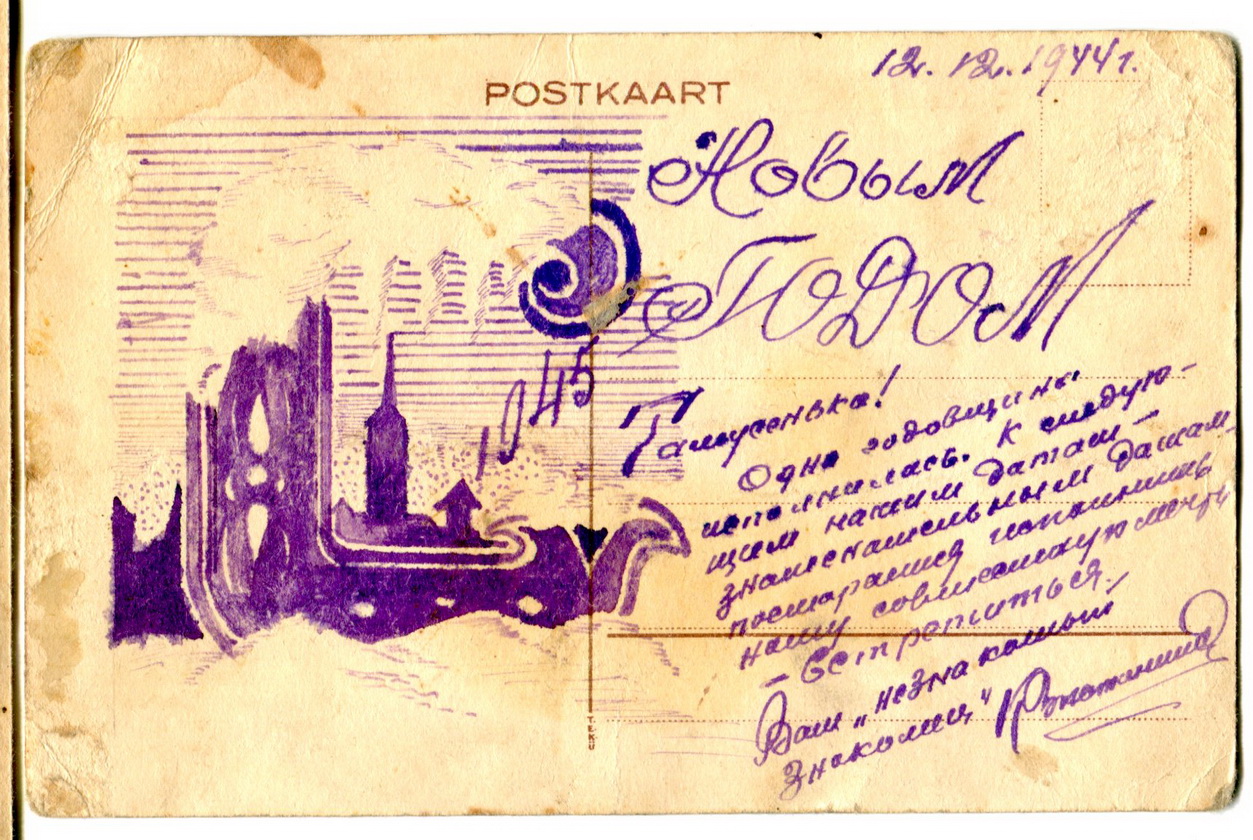 12.12.1944г.
POSTKAART
Новым
ГОДОМ
1945
Тамусенька!
Одна годовщина
исполнилась. К следую-
щим нашим датам -
знаменательным датам
постараемся исполнить
нашу совместную мечту
- встретиться!
Ваш „незнакомый
знакомец"
TEKU